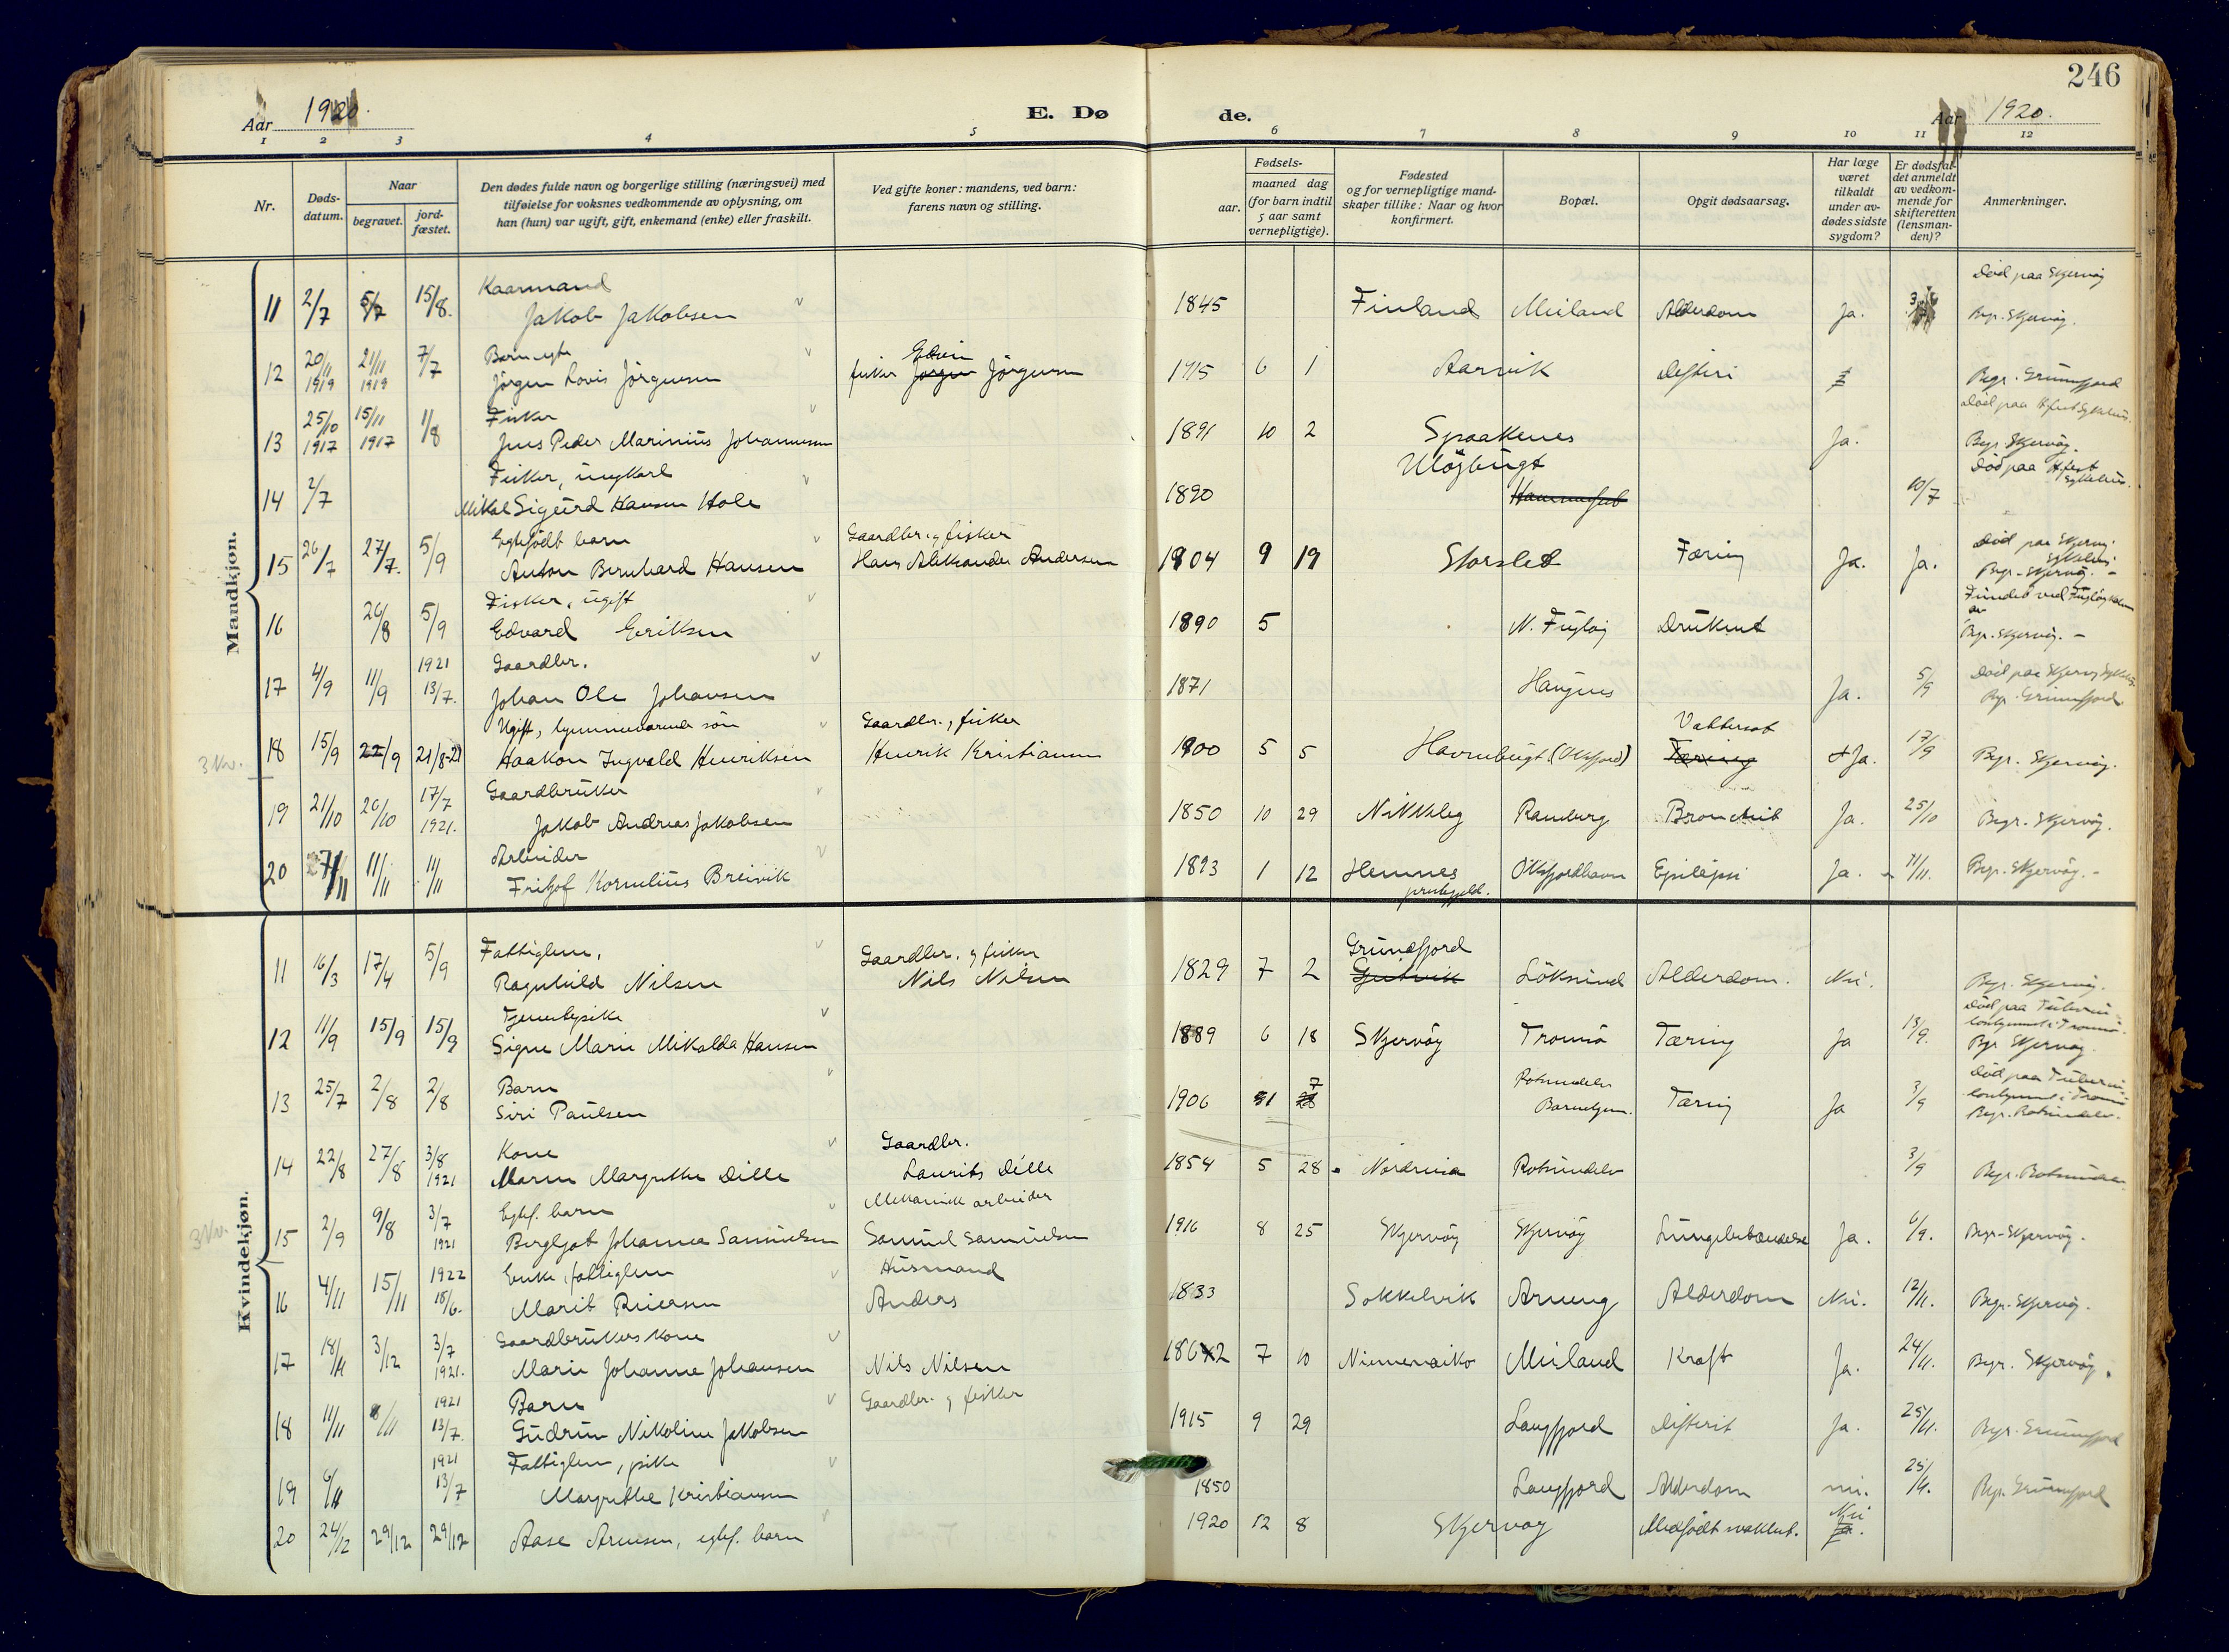 246
Aar 1920.
E. Dø
de.
Aar 1920.
1 2 3 4 5 6 7 8 9 10 11 12
Nr.
Døds-
datum.
Naar
begravet.
jord-
fæstet.
Den dødes fulde navn og borgerlige stilling (næringsvei) med
tilføielse for voksnes vedkommende av oplysning, om
han (hun) var ugift, gift, enkemand (enke) eller fraskilt.
Ved gifte koner: mandens, ved barn:
farens navn og stilling.
Fødsels-
aar.
maaned dag
(for barn indtil
5 aar samt
vernepligtige).
Fødested
og for vernepligtige mand-
skaper tillike: Naar og hvor
konfirmert.
Bopæl.
Opgit dødsaarsag.
Har læge
været
tilkaldt
under av-
dødes sidste
sygdom?
Er dødsfal-
det anmeldt
av vedkom-
mende for
skifteretten
(lensman-
den)?
Anmerkninger.
Mandkjøn.
Kaarmand
Død paa Skjervøy
11 2/7 5/7 15/8. Jakob Jakobsen 1845 Finland Meiland Alderdom Ja. Begr. Skjervøy.
Barn egte
Edvin
12 20/11 1919 21/11 1919 7/7 Jörgen Lovis Jörgensen fisker Jørgen Jörgensen 1915 6 1 Aarvik Difteri Begr. Grunnfjord
Fisker
13 25/10 1917 15/11 1917 1/8 Jens Peder Marinius Johannesen 1891 10 2 Spaakenes Ja. Begr. Skjervøy.
Fisker, ungkarl
Uløybugt
Død paa Hfest Sykehus.
14 2/7 Mikal Sigurd Hansen Hole 1890 Hammerfest 10/7
Egtefödt barn
Gaardbr. og fisker
Død paa Skjervøy Sykehus
15 26/7 27/7. 5/9 Anton Bernhard Hansen Hans Aleksander Andersen 1904 9 19 Storslet Tæring Ja. Ja. Begr. Skjervøy. -
Fisker, ugift
16 26/8 5/9 Edvard Eriksen 1890 5 N. Fugløy Druknet Begr. Skjervøy. -
Gaardbr.
Død paa Skjervøy Sykehus.
17 4/9 11/9 1921 13/7. Johan Ole Johansen 1871 Haugnes Ja. 5/9 Begr. Grunnfjord
Ugift, hjemmeværende søn
Gaardbr., fisker
Vattersot
3 Nv.
18 15/9 22/9 21/8-21 Haakon Ingvald Henriksen Henrik Kristiansen 1900 5 5 Havnnbugt (Oksfjord) Tæring Ja. 17/9 Begr. Skjervøy.
Gaardbruker
19 21/10 26/10 17/7 1921. Jakob Andreas Jakobsen 1850 10 29 Nikkeby Ramberg Bronchit Ja. 25/10 Begr. Skjervøy.
Arbeider
20 7/11 11/11 11/11 Fritjof Kornelius Breivik 1893 1 12 Hemnes prestegjeld. Oksfjordhavn Epilepsi Ja. 11/11. Begr. Skjervøy. -
Kvindekjøn.
Fattiglem,
Gaardbr. og fisker
Grundfjord
11 16/3 17/4 5/9 Ragnhild Nilsen Nils Nilsen 1829 7 2 Löksund Alderdom. Nei. Begr. Skjervøy.
Tjenestepike
12 11/9 15/9 15/9 Signe Marie Mikalda Hansen 1889 6 18 Skjervøy Tromsö Tæring Ja 13/9. Begr. Skjervøy.
Barn
Rotsundelv
7
13 25/7 2/8 2/8 Siri Paulsen 1906 Barnehjem. Tæring Ja 3/9 Begr. Rotsundelv.
Kone
Gaardbr.
14 22/8 27/8 3/8 1921 Maren Margrethe Dille Laurits Dille 1854 5 28 Nordreisa Rotsundelv 3/9 Begr. Rotsundelv
Egtef. barn
Mekanisk arbeider
3 Nv.
15 2/9 9/8 3/7 1921 Bergljot Johanna Samuelsen Samuel Samuelsen 1916 8 25 Skjervöy Skjervöy Lungebetændelse Ja. 6/9. Begr. Skjervøy.
Enke, fattiglem
Husmand
16 4/11 15/11 1922 18/6. Marit Reiersen Anders 1833 Sokkelvik Arnøy Alderdom Nei. 12/11. Begr. Skjervøy.
Gaardbrukers kone
17 18/11 3/12 3/7 1921. Marie Johanne Johansen Nils Nilsen 1862 7 10 Meiland Kræft Ja. 24/11. Begr. Skjervøy.
Barn
Gaardbr. og fisker
18 11/11 1921 13/7. Gudrun Nikoline Jakobsen 1915 9 29 Langfjord Difterit Ja. 25/11. Begr. Grunnfjord
Fattiglem, pike
19 6/11 1921 13/7 Margrethe Kristiansen 1850 Langfjord Alderdom nei. 25/11. Begr. Grunnfjord
Nei
20 24/12 29/12 29/12 Aase Arnesen, egtef. barn 1920 12 8 Skjervøy Medfødt svakhet. Ja.